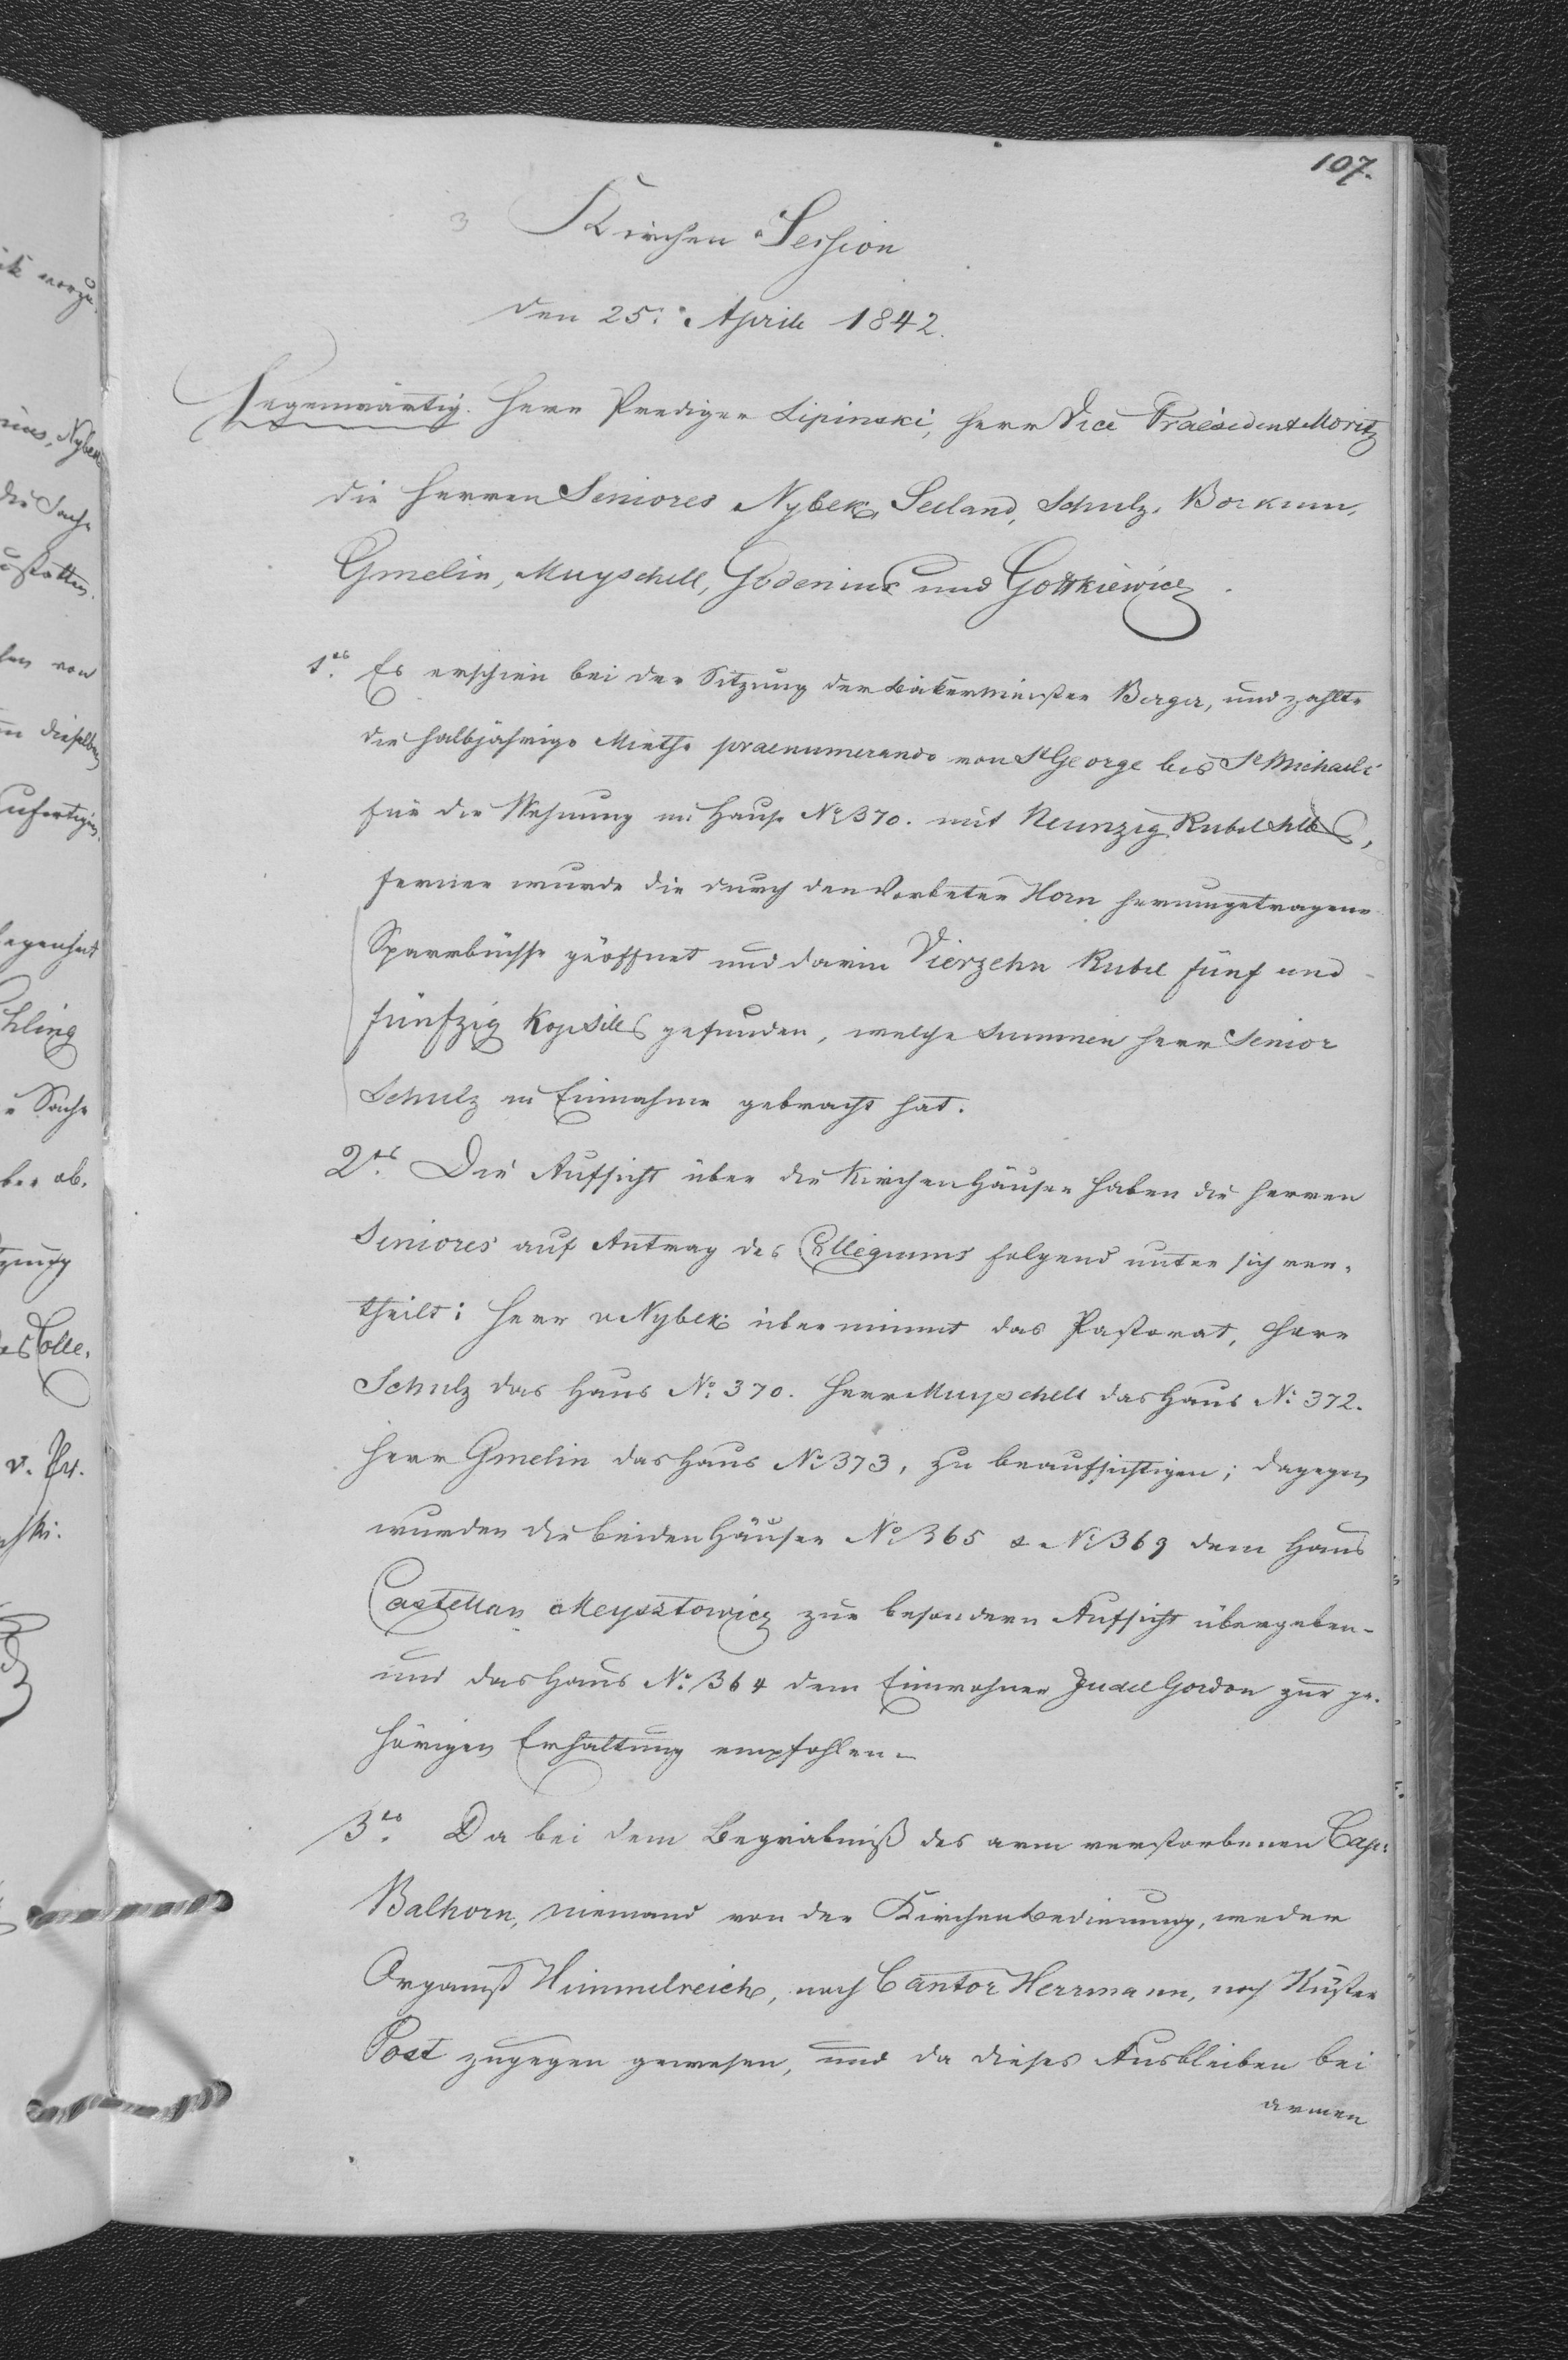 107.
Kirchen Session
den 25. April 1842.
Gegenwärtig. Herr Prediger Lipinski, Herr Vice Praesedent Moritz
die Herren Seniores Nybek, Seeland, Schulz, Borkum,
Gmelin, Muyschell, Godenius und Gottkiewicz.
1tes Es erschien bei der Sitzung der Bäkermeister Berger, und zahlte
die halbjährige Miethe praenumerando von St George bis St Michaeli
für die Wohnung im Hause No 370. mit Neunzig Rubel Slb,
ferner wurde die durch den Vorbeter Horn herumgetragene
Sparrbüchse geöffnet und darin Vierzehn Rubel fünf und
fünfzig Kop Silb gefunden, welche Summen Herr Senior
Schulz in Einnahme gebracht hat.
2tes Die Aufsicht über die Kirchenhäuser haben die Herren
Seniores auf Antrag des Collegiums folgend unter sich ver-
theilt: Herr v Nybek übernimmt das Pastorat, Herr
Schulz das Haus No. 370. Herr Muyschell das Haus No 372.
Herr Gmelin das Haus No 373, zu beaufsichtigen; dagegen
wurden die beiden Häuser No 365 & No 369 dem Haus
Castellan Meysztowicz zur besondern Aufsicht übergeben-
und das Haus No. 364 dem Einwohner Judel Gordon zur ge-
hörigen Erhaltung empfohlen.
3tes Da bei dem Begräbniß des arm verstorbenen Cap:
Balhorn, niemand von der Kirchenbedienung, weder
Organist Himmelreich, noch Cantor Herrmann, noch Küster
Post zugegen gewesen, und da dieses Ausbleiben bei
armen